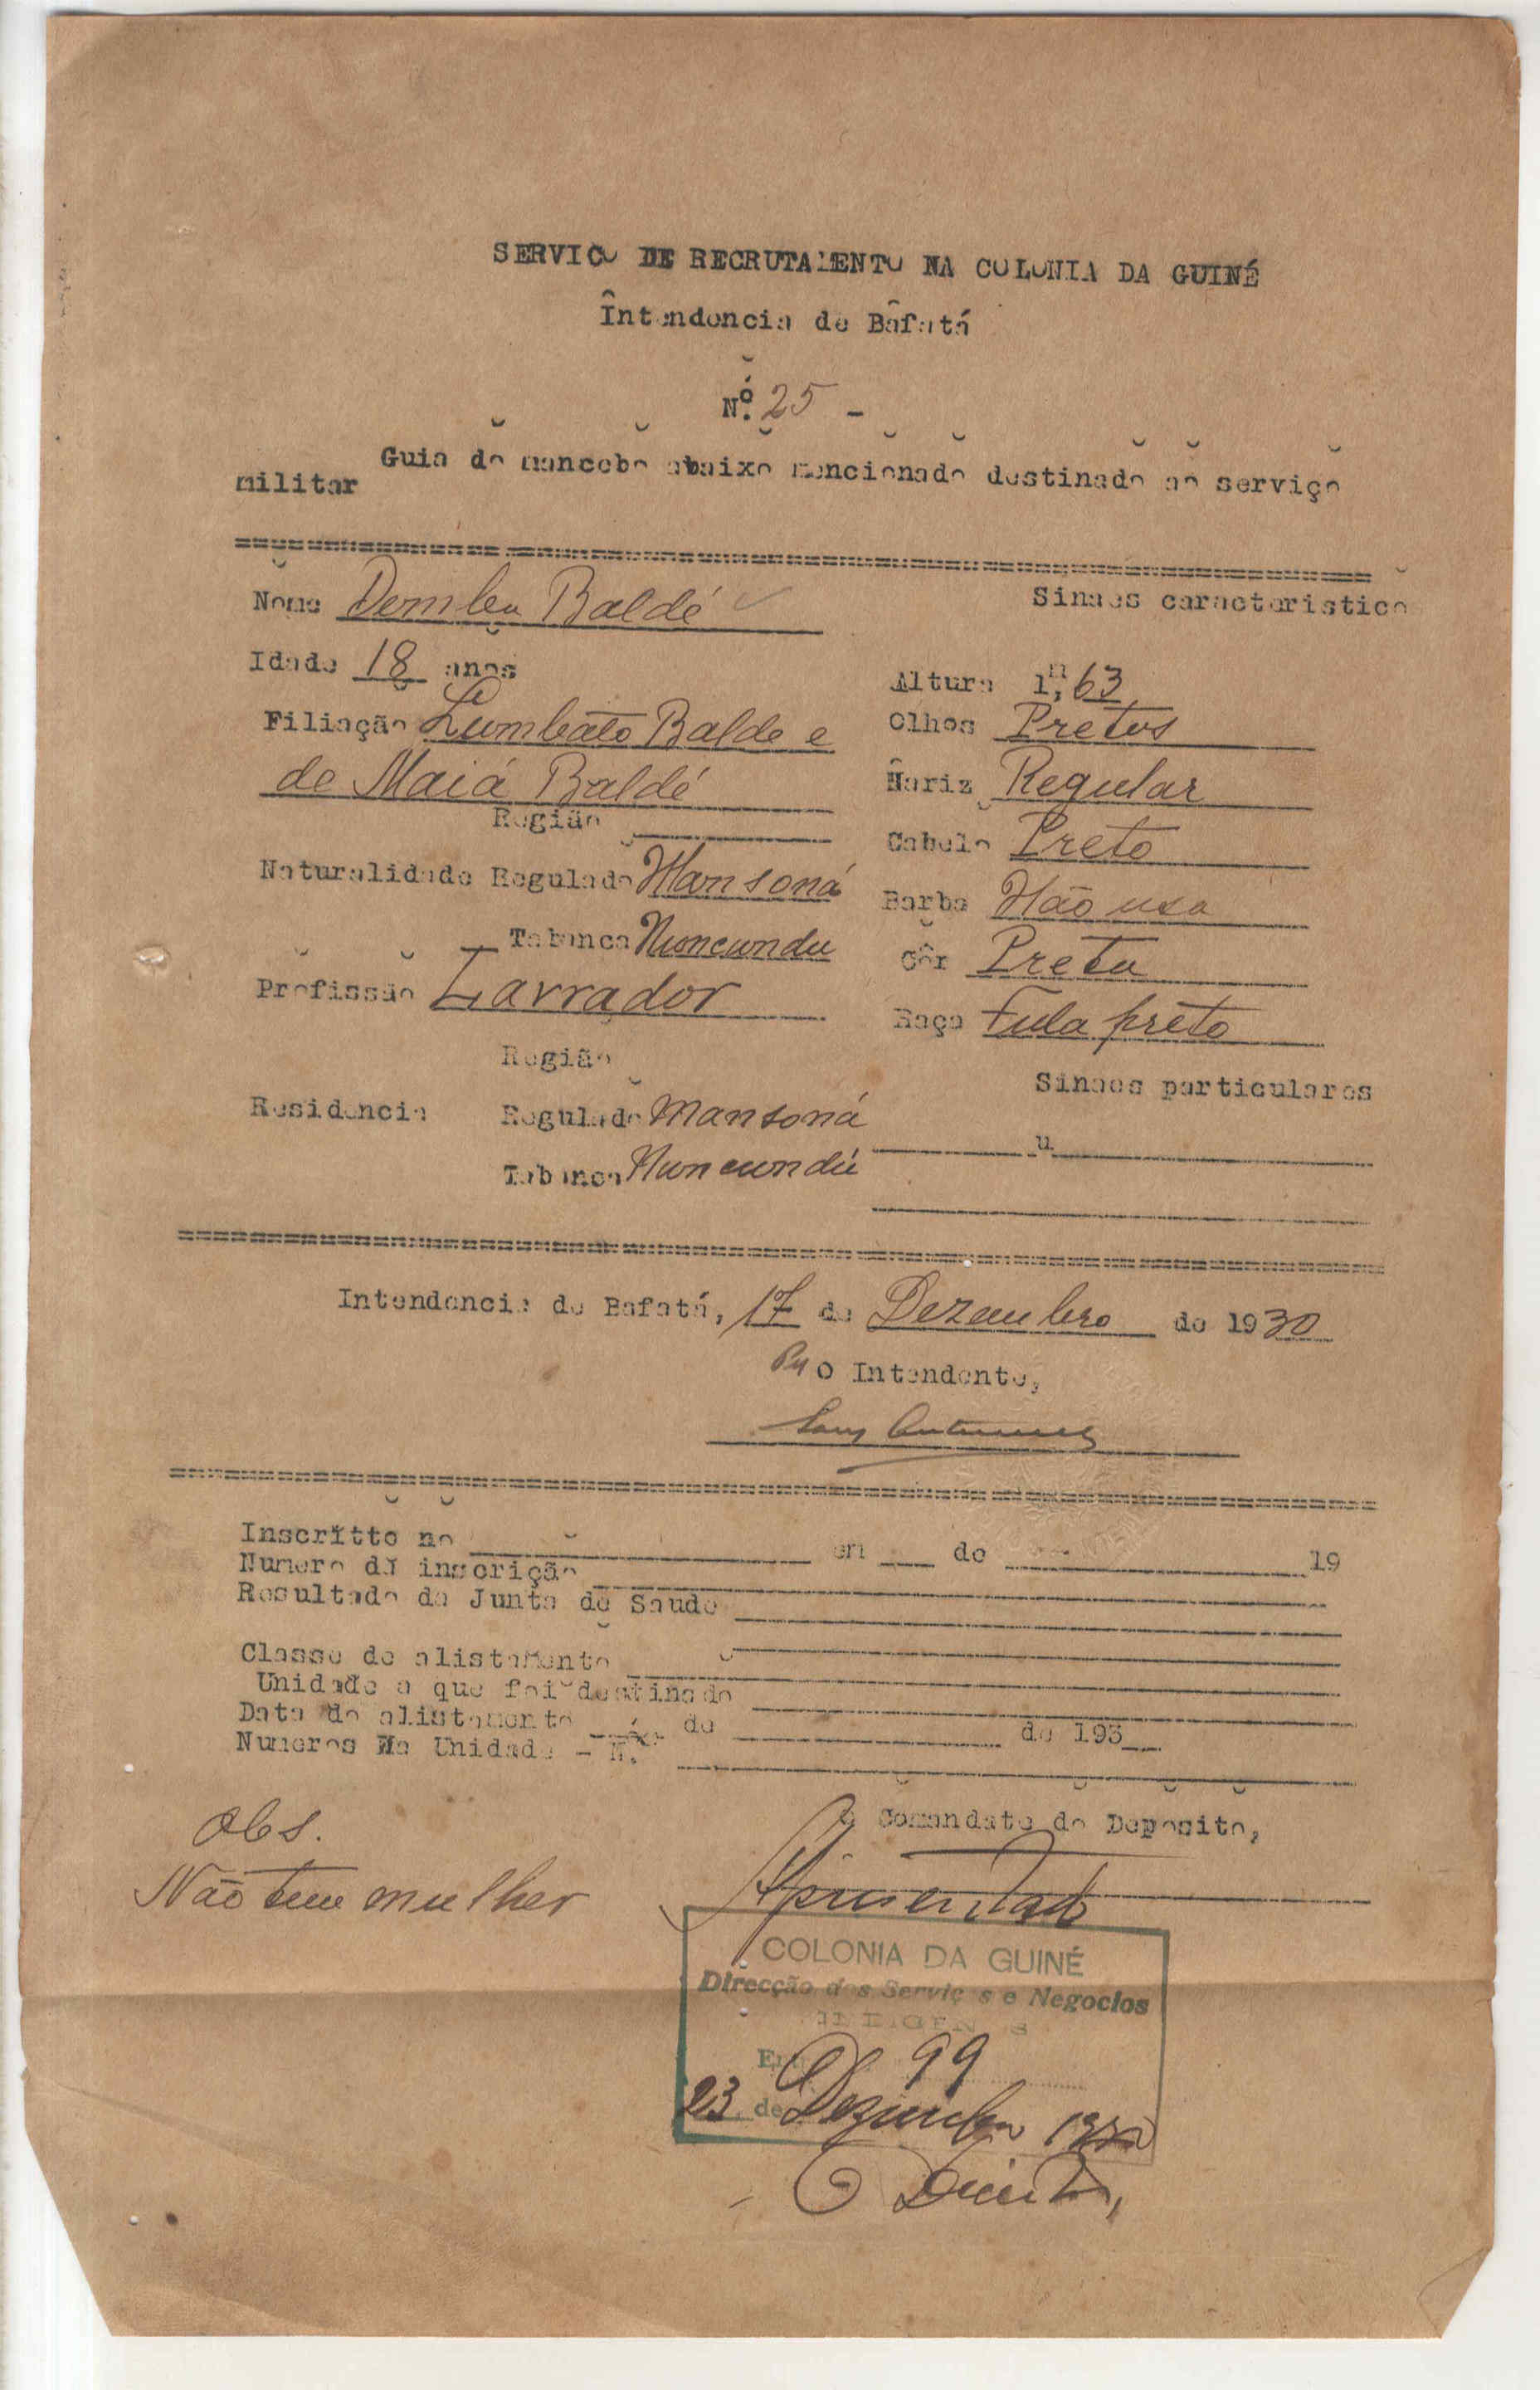 SERVIÇO DE RECRUTAMENTO NA COLONIA DA GUINÉ
Intendencia de Bafatá
Nº. 25 -
Guia do mancebo abaixo mencionado destinado ao serviço
militar
Nome Demba Baldé
Sinaes caracteristico
Idade 18 anos
Altura 1,m63
Filiação Lumbato Balde e
de Maiá Baldé
Olhos Pretos
Nariz Regular
Região
Cabelo Preto
Naturalidade Regulado Mansoná
Barba Não usa
Tabanca Nuncundu
Côr Preta
Profissão Lavrador
Raça Fula preto
Região
Sinaes particulares
Residencia Regulado Mansoná
Tabanca Nuncundú
Intendencia de Bafatá, 17 de Dezembro de 1930
O Intendente,
Inscritto no em de 19
Numero da inscrição
Resultado da Junta de Saude
Classe de alistamento
Unidade a que foi destinado
Data do alistamento de de 193
Numeros Na Unidade - N.º
Obs.
Não tem mulher
O Comandate do Deposito,
Apresentado
COLONIA DA GUINÉ
Direcção dos Serviços e Negocios
INDIGENAS
Ent. 99
23 de Dezembro 1930
O Director,